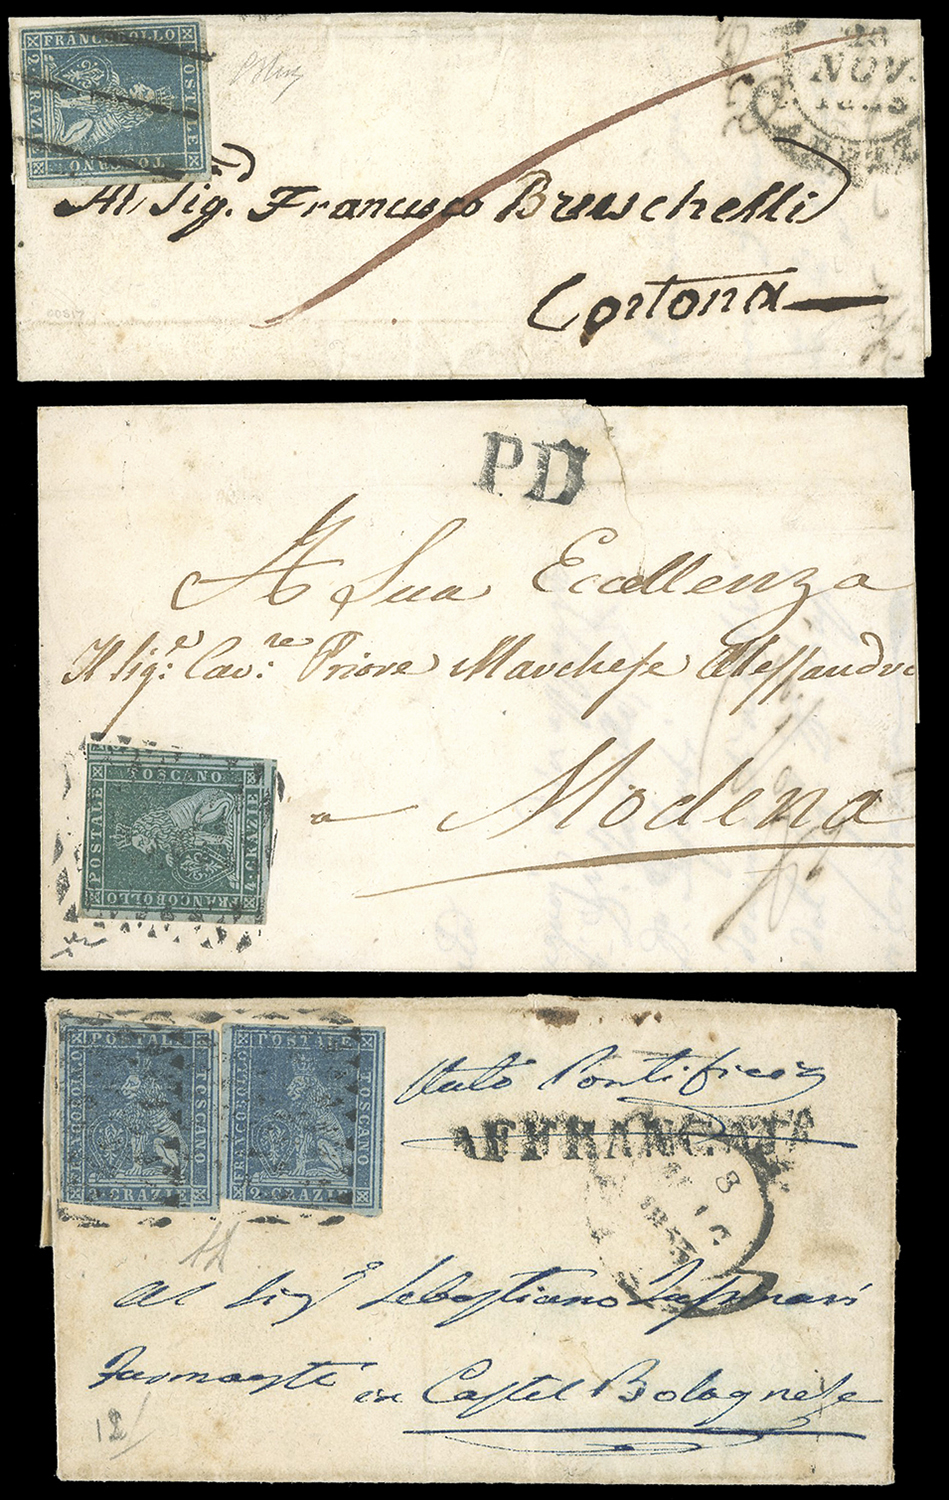 FRANCOBOLLO
POSTALE
TOSCANO
2 CRAZIE
28
NOV.
Al Sig. Francesco Bruschelli
Cortona
00817
PD
A Sua Eccellenza
Il Sig.e Cav.re Priore Marchese Alessandro
TOSCANO
POSTALE
4 CRAZIE
FRANCOBOLLO
a Modena
POSTALE
FRANCOBOLLO
TOSCANO
2 CRAZIE
POSTALE
FRANCOBOLLO
TOSCANO
2 CRAZIE
Stato Pontificio
AFFRANCATA
8
Al Sig Sebastiano
in Castel Bolognese
12/